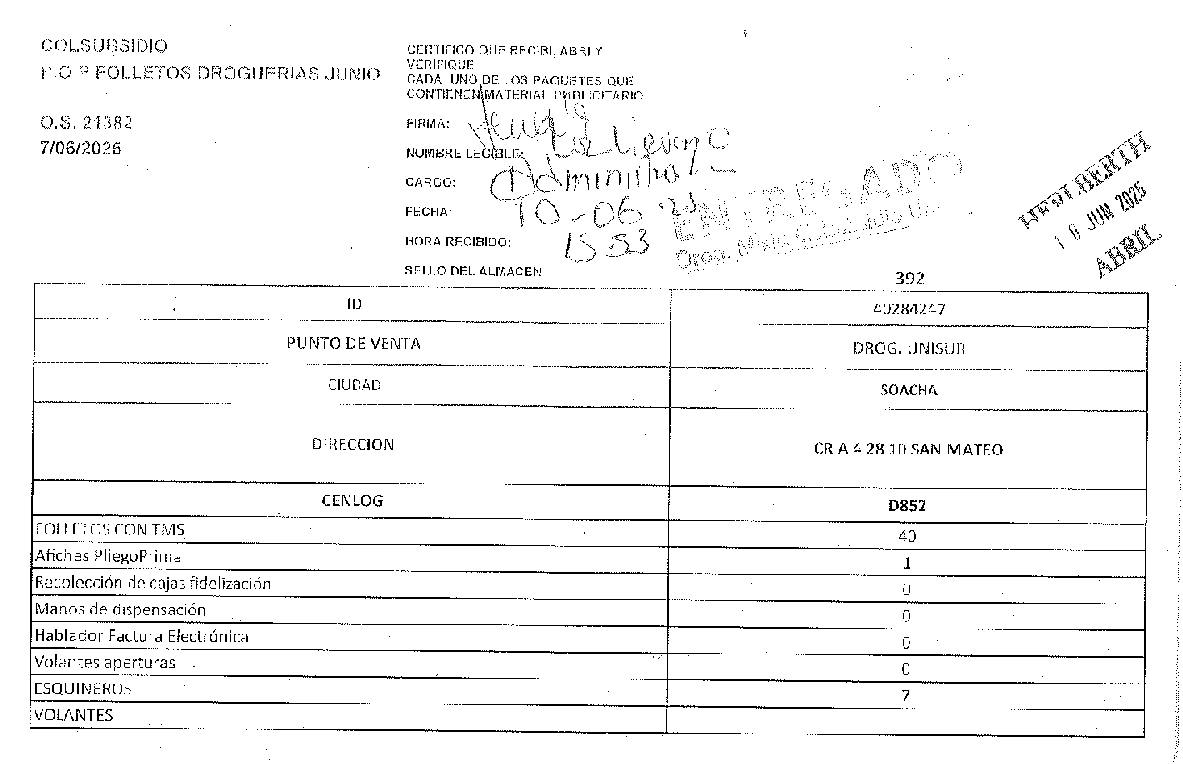 COLSUBSIDIO
P.O.P FOLLETOS DROGUERIAS JUNIO
O.S. 21382
7/06/2026
CERTIFICO QUE RECIBI, ABRI Y
VERIFIQUE
CADA UNO DE LOS PAQUETES QUE
CONTIENEN MATERIAL PUBLICITARIO
FIRMA:
NOMBRE LEGIBLE:
CARGO:
FECHA: 10-06
HORA RECIBIDO: 15:53
SELLO DEL ALMACEN
ENTREGADO
16 JUN 2025
ABRIL
392
ID 40284247
PUNTO DE VENTA DROG. UNISUR
CIUDAD SOACHA
DIRECCION CR A 4 28 10 SAN MATEO
CENLOG D852
FOLLETOS CON TMS 40
Afiches PliegoPrima 1
Recolección de cajas fidelización 0
Manos de dispensación 0
Hablador Factura Electrónica 0
Volantes aperturas 0
ESQUINEROS 7
VOLANTES